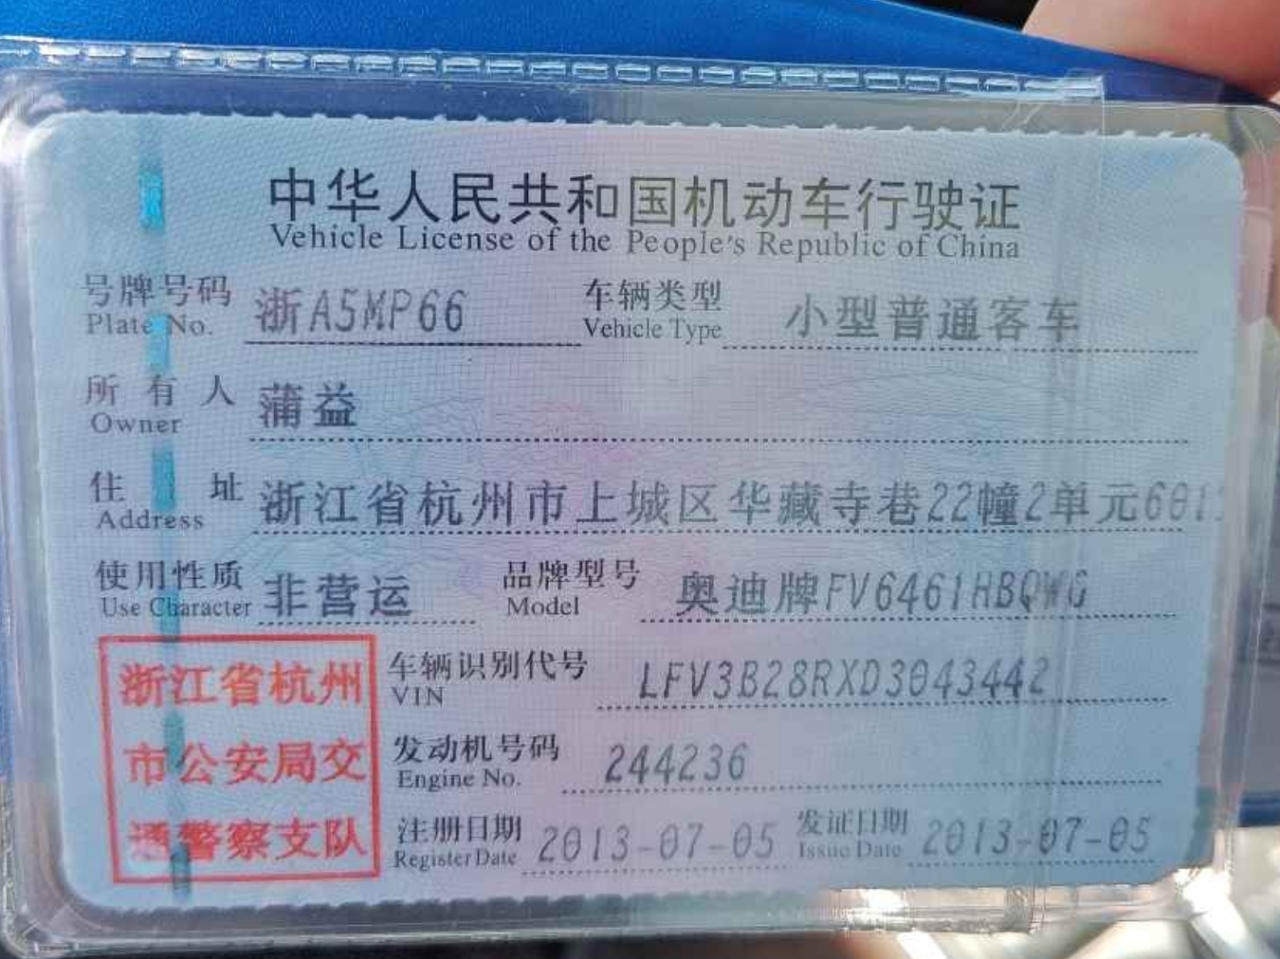 中华人民共和国机动车行驶证
Vehicle License of the People's Republic of China
号牌号码 浙A5MP66 车辆类型 小型普通客车
Plate No. Vehicle Type
所有人 蒲益
Owner
住址 浙江省杭州市上城区华藏寺巷22幢2单元601
Address
使用性质 非营运 品牌型号 奥迪牌FV6461HBQWG
Use Character Model
浙江省杭州
市公安局交
通警察支队
车辆识别代号 LFV3B28RXD3043442
VIN
发动机号码 244236
Engine No.
注册日期 2013-07-05 发证日期 2013-07-05
Register Date Issue Date